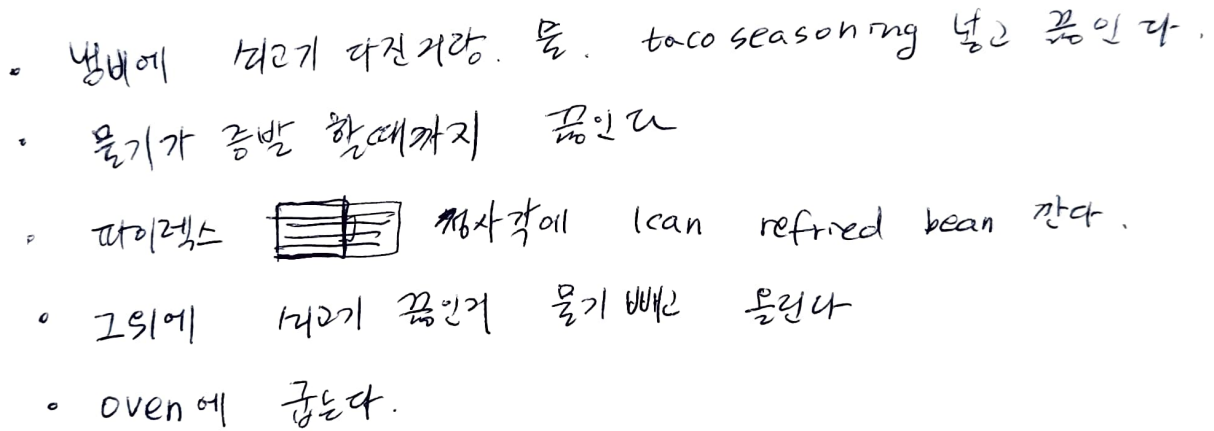 · 냄비에 쇠고기 다진거랑. 물. taco seasoning 넣고 끓인다.
· 물기가 증발 할때까지 끓인다
· 파이렉스 정사각에 1can refried bean 깐다.
· 그위에 쇠고기 끓인거 물기빼고 올린다
· oven에 굽는다.